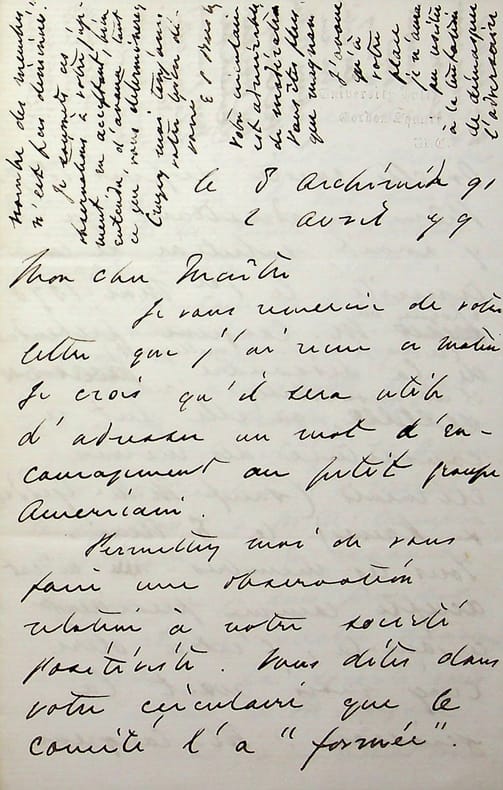 nombre des membres
n'est pas déterminé.
Je soumets ces
observations à votre juge-
ment en acceptant, bien
entendu, d'avance tout
ce que vous déterminerez
Croyez moi toujours
votre dé-
voué
E S Beesly
Votre circulaire
est admirable
de modération
Vous êtes plus
que
J'avoue
qu'à
votre
place
je
pu résister
à la tentation
de démasquer
l'adversaire
University Hall
Gordon Square
W.C.
le 8 Archimède 91
2 Avril 79
Mon cher Maître
Je vous remercie de votre
lettre que j'ai reçue ce matin
Je crois qu'il sera utile
d'adresser un mot d'en-
couragement au petit groupe
Américain.
Permettez moi de vous
faire une observation
relative à votre société
positiviste. Vous dites dans
votre circulaire que le
comité l'a "formée".